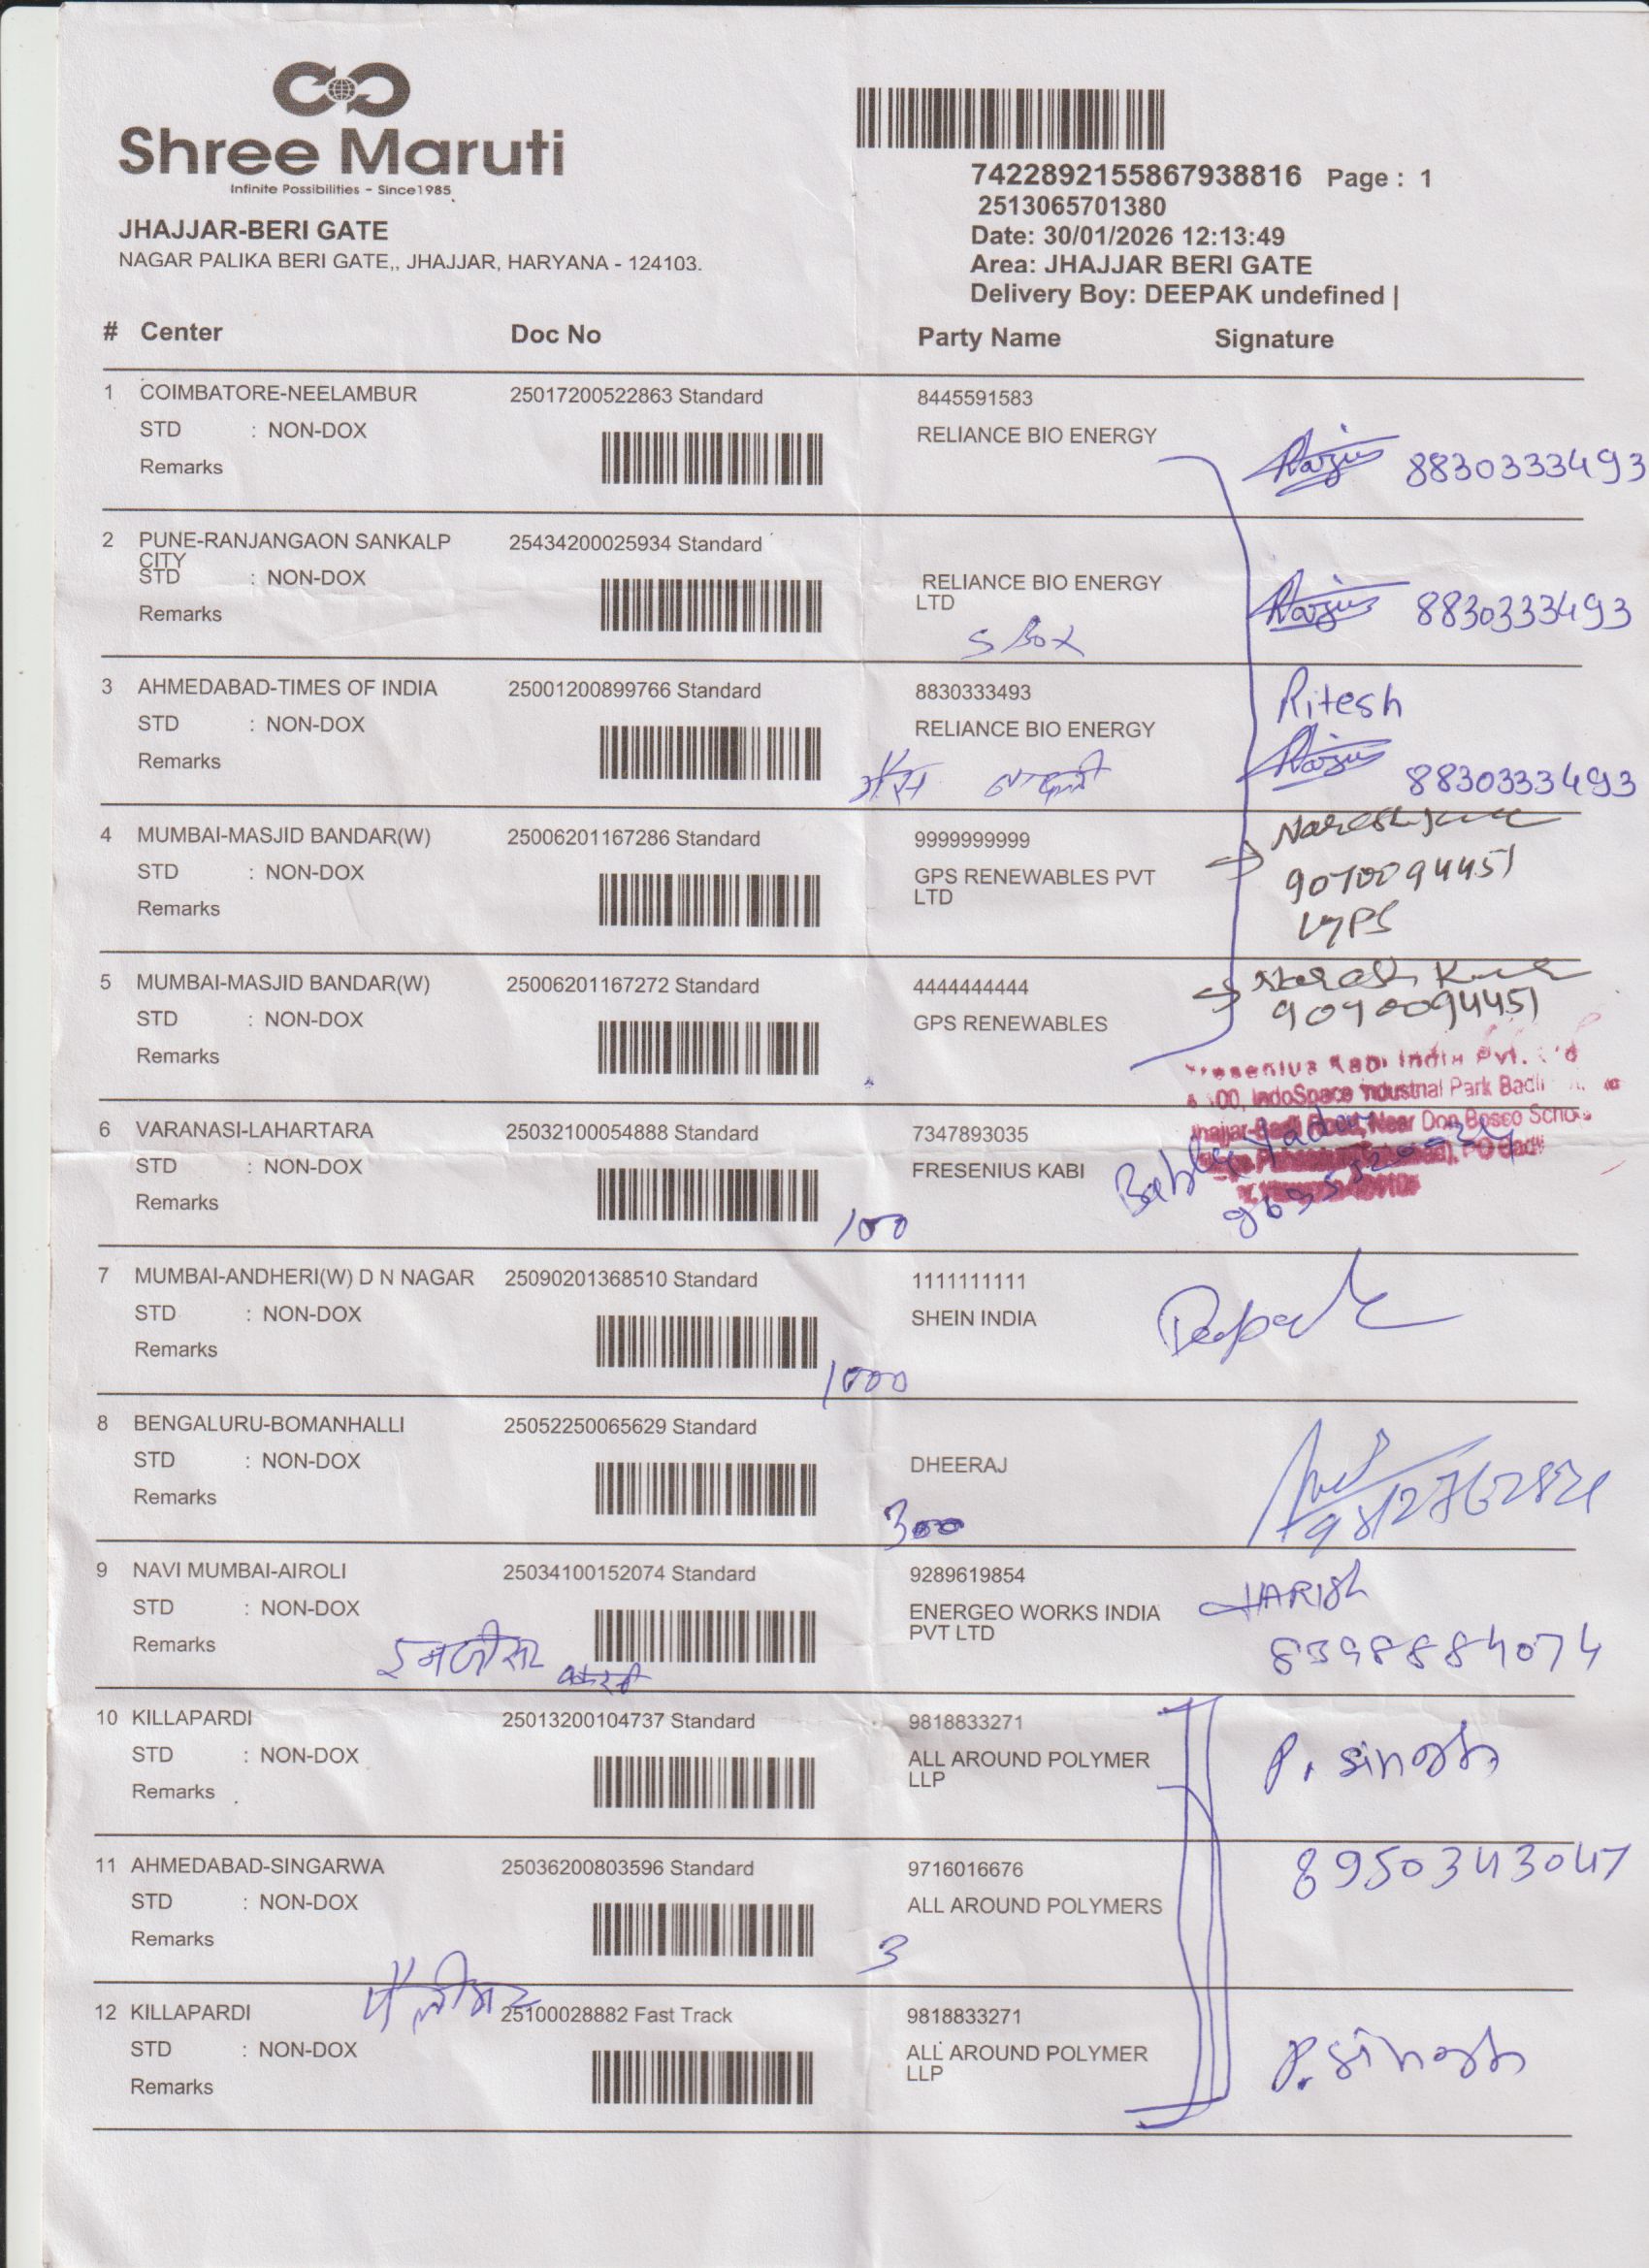 Shree Maruti
Infinite Possibilities - Since1985
JHAJJAR-BERI GATE
NAGAR PALIKA BERI GATE,, JHAJJAR, HARYANA - 124103.
7422892155867938816 Page : 1
2513065701380
Date: 30/01/2026 12:13:49
Area: JHAJJAR BERI GATE
Delivery Boy: DEEPAK undefined |
# Center Doc No Party Name Signature
1 COIMBATORE-NEELAMBUR 25017200522863 Standard 8445591583
STD : NON-DOX RELIANCE BIO ENERGY
Remarks 8830333493
2 PUNE-RANJANGAON SANKALP 25434200025934 Standard
CITY
STD : NON-DOX RELIANCE BIO ENERGY
LTD
Remarks 8830333493
5 Box
3 AHMEDABAD-TIMES OF INDIA 25001200899766 Standard 8830333493 Ritesh
STD : NON-DOX RELIANCE BIO ENERGY
Remarks 8830333493
4 MUMBAI-MASJID BANDAR(W) 25006201167286 Standard 9999999999 Naresh
STD : NON-DOX GPS RENEWABLES PVT
LTD
Remarks
5 MUMBAI-MASJID BANDAR(W) 25006201167272 Standard 4444444444 Naresh
STD : NON-DOX GPS RENEWABLES
Remarks
Fresenius Kabi India Pvt.
IndoSpace Industrial Park Badli
Near Don Bosco
6 VARANASI-LAHARTARA 25032100054888 Standard 7347893035
STD : NON-DOX FRESENIUS KABI
Remarks
100
7 MUMBAI-ANDHERI(W) D N NAGAR 25090201368510 Standard 1111111111
STD : NON-DOX SHEIN INDIA Deepak
Remarks
1000
8 BENGALURU-BOMANHALLI 25052250065629 Standard
STD : NON-DOX DHEERAJ
Remarks
300
9 NAVI MUMBAI-AIROLI 25034100152074 Standard 9289619854 HARISH
STD : NON-DOX ENERGEO WORKS INDIA
PVT LTD
Remarks 8398884074
10 KILLAPARDI 25013200104737 Standard 9818833271
STD : NON-DOX ALL AROUND POLYMER P. Singh
LLP
Remarks
11 AHMEDABAD-SINGARWA 25036200803596 Standard 9716016676 8950343047
STD : NON-DOX ALL AROUND POLYMERS
Remarks
3
12 KILLAPARDI 25100028882 Fast Track 9818833271
STD : NON-DOX ALL AROUND POLYMER P. Singh
LLP
Remarks